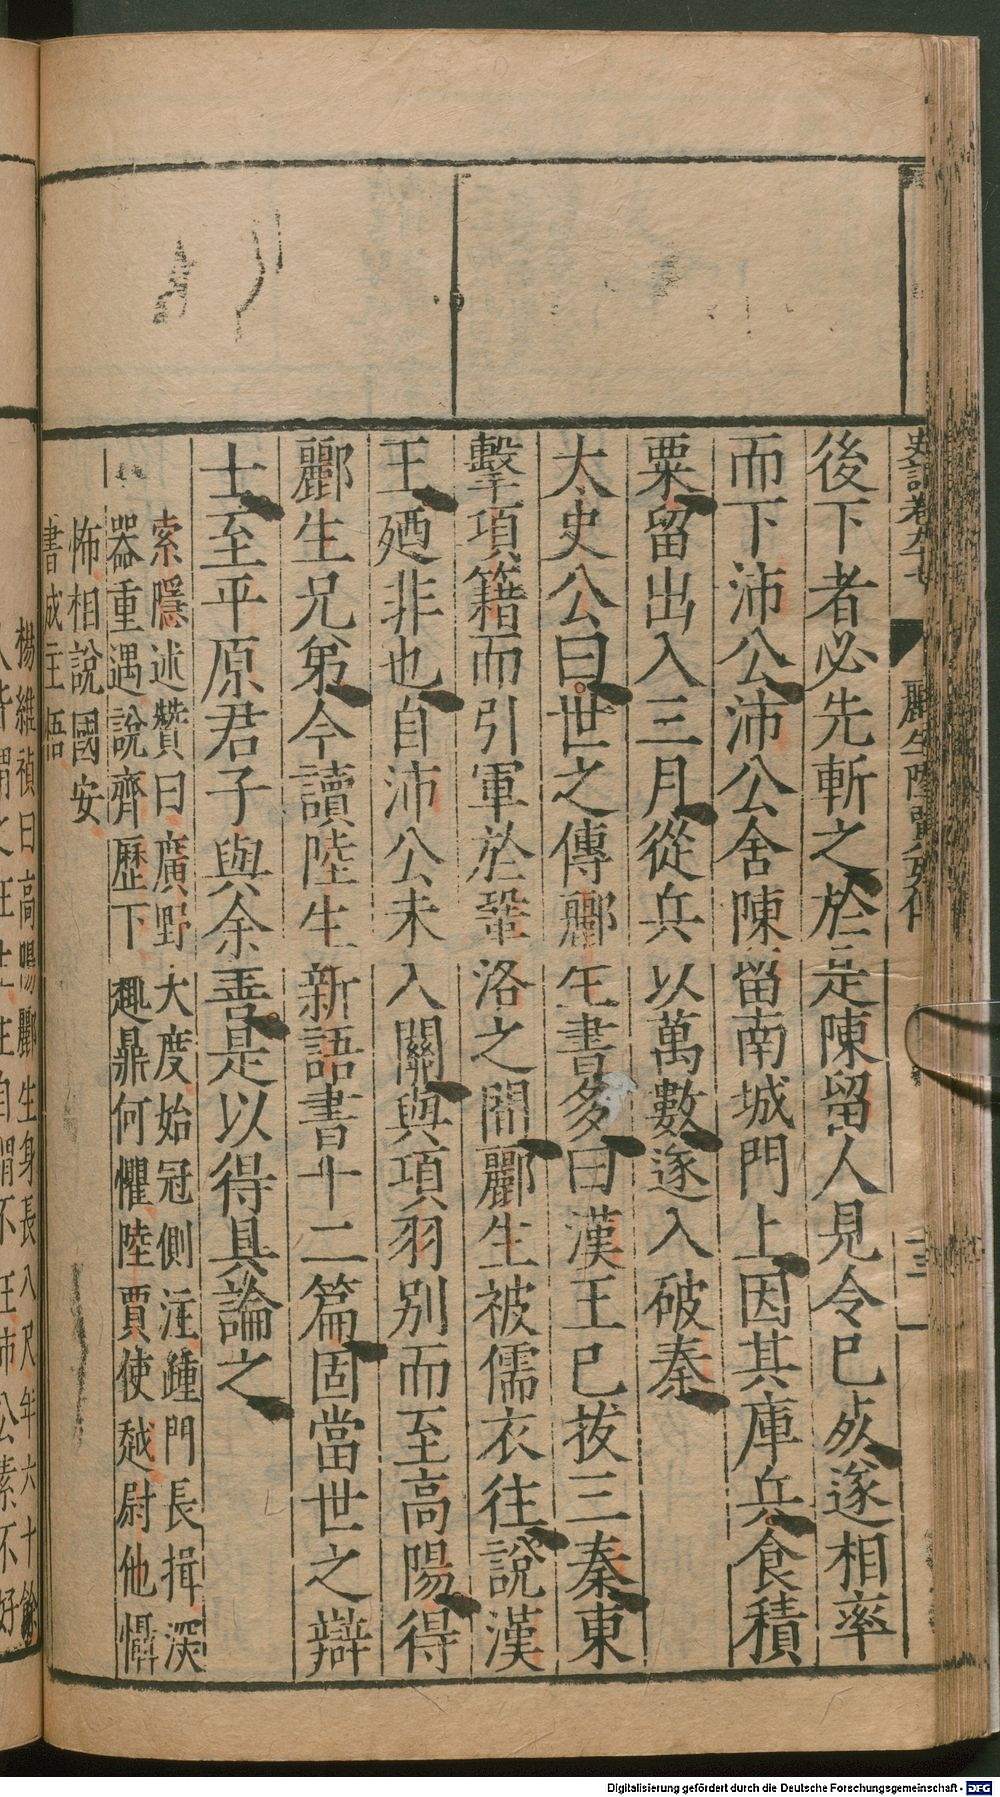 史記卷九十七
酈生陸賈列傳
十三
後下者必先斬之於是陳留人見令已死遂相率
而下沛公沛公舍陳留南城門上因其庫兵食積
粟留出入三月從兵以萬數遂入破秦
太史公曰世之傳酈生書多曰漢王已拔三秦東
擊項籍而引軍於鞏洛之間酈生被儒衣往說漢
王廼非也自沛公未入關與項羽別而至高陽得
酈生兄弟今讀陸生新語書十二篇固當世之辯
士至平原君子與余善是以得具論之
索隱述贊曰廣野大度始冠側注踵門長揖深
器重遇說齊歷下趣鼎何懼陸賈使越尉他懾
怖相說國安
書成主悟
楊維禎曰高陽酈生身長八尺年六十餘
人皆謂之狂生生自謂不狂沛公素不好
Digitalisierung gefördert durch die Deutsche Forschungsgemeinschaft - DFG